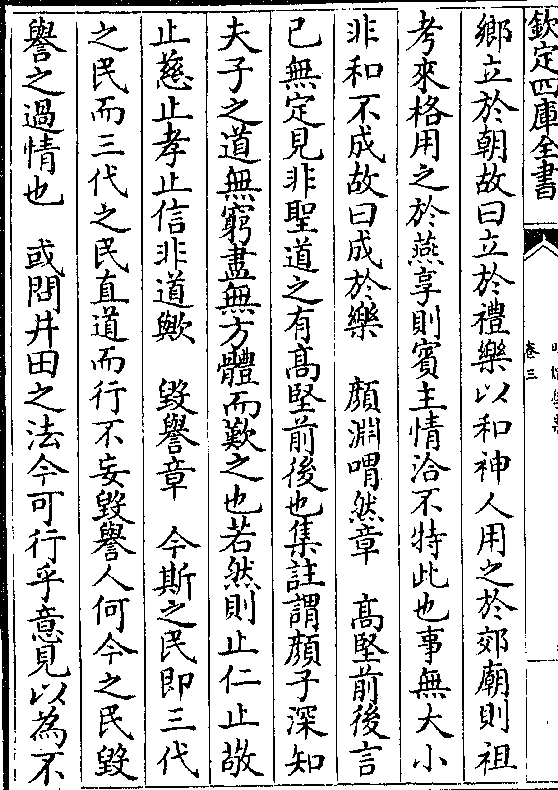 欽定四庫全書
卷三
鄉立於朝故曰立於禮樂以和神人用之於郊廟則祖
考來格用之於燕享則賓主情洽不特此也事無大小
非和不成故曰成於樂　顔淵喟然章　髙堅前後言
已無定見非聖道之有髙堅前後也集註謂顔子深知
夫子之道無窮盡無方體而歎之也若然則止仁止敬
止慈止孝止信非道歟　毀譽章　今斯之民即三代
之民而三代之民直道而行不妄毀譽人何今之民毀
譽之過情也　或問井田之法今可行乎意見以為不